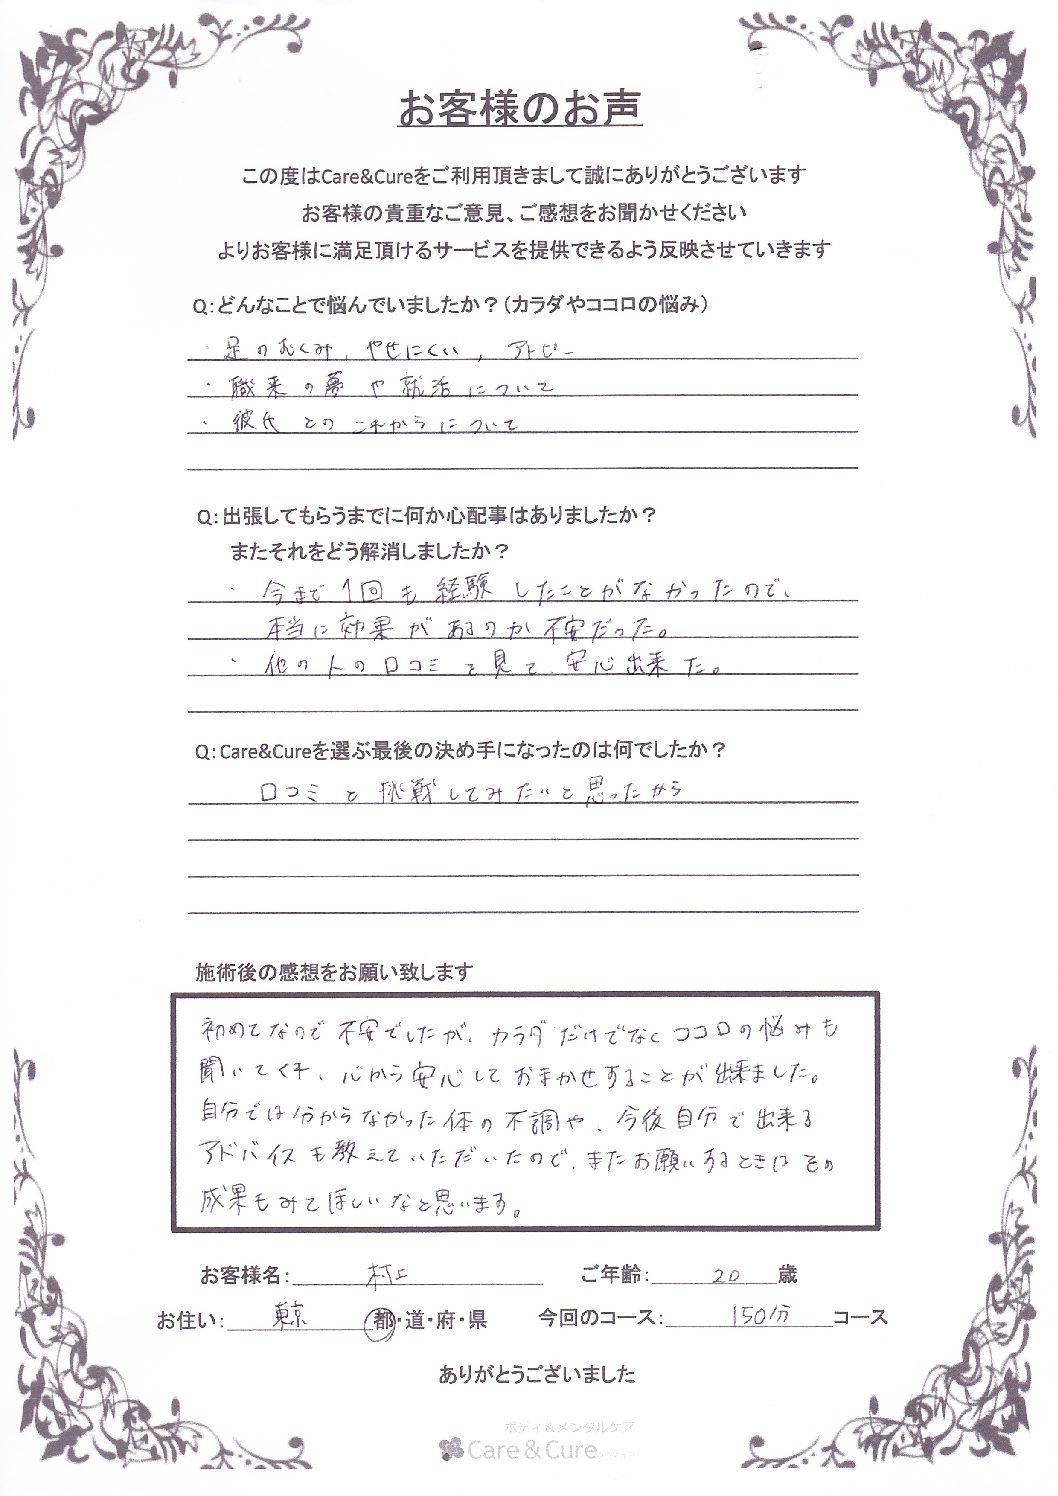 お客様のお声
この度はCare&Cureをご利用頂きまして誠にありがとうございます
お客様の貴重なご意見、ご感想をお聞かせください
よりお客様に満足頂けるサービスを提供できるよう反映させていきます
Q:どんなことで悩んでいましたか？(カラダやココロの悩み)
・足のむくみ、やせにくい、アトピー
・職来の夢や就活について
・彼氏とのこれからについて
Q:出張してもらうまでに何か心配事はありましたか？
またそれをどう解消しましたか？
・今まで1回も経験したことがなかったので、
本当に効果があるのか不安だった。
・他の人の口コミを見て、安心出来た。
Q:Care&Cureを選ぶ最後の決め手になったのは何でしたか？
口コミと挑戦してみたいと思ったから
施術後の感想をお願い致します
初めてなので不安でしたが、カラダだけでなくココロの悩みも
聞いてくれ、心から安心しておまかせすることが出来ました。
自分では分からなかった体の不調や、今後自分で出来る
アドバイスも教えていただいたので、またお願いするときはその
成果もみてほしいなと思います。
お客様名:村上 ご年齢:20歳
お住い:東京 都・道・府・県 今回のコース:150分コース
ありがとうございました
ボディ&メンタルケア
Care&Cure